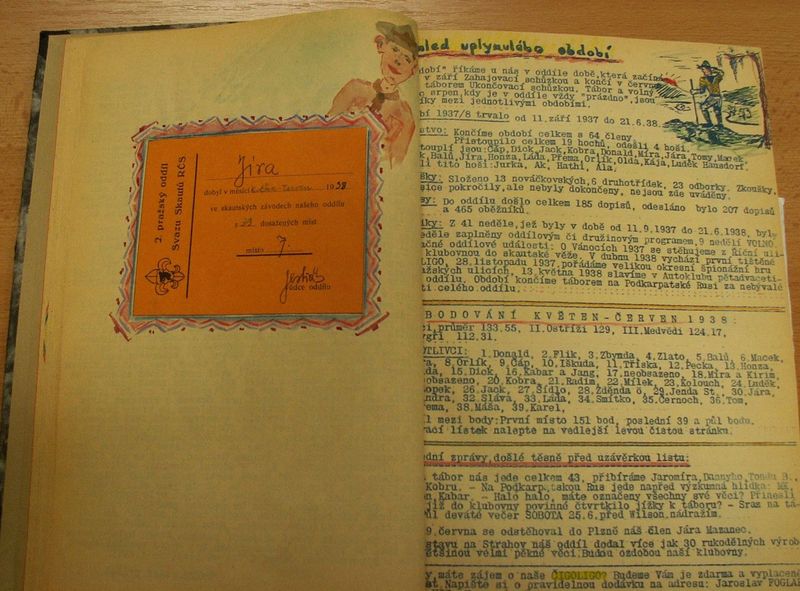 2. pražský oddíl
Svazu Skautů RČS
Jíra
dobyl v měsíci 1938
ve skautských závodech našeho oddílu
z 39 dosažených míst
místo 7.
vůdce oddílu
hled uplynulého období
dobí" říkáme u nás v oddíle době, která začíná
v září Zahajovací schůzkou a končí v červnu
táborem Ukončovací schůzkou. Tábor a volný
srpen, kdy je v oddíle vždy "prázdno", jsou
íky mezi jednotlivými obdobími.
bí 1937/8 trvalo od 11. září 1937 do 21.6.38.
stvo: Končíme období celkem s 64 členy.
Přistoupilo celkem 19 hochů, odešli 4 hoši.
toupli jsou: Čáp, Dick, Jack, Kobra, Donald, Míra, Jára, Tomy, Macek
k, Balú, Jíra, Honza, Láďa, Přema, Orlík, Olda, Kája, Luděk Hausdorf.
li tito hoši: Jurka, Ak, Hathi, Ala.
šky: Složeno 13 nováčkovských, 6 druhotřídek, 23 odborky. Zkoušky,
sice pokročily, ale nebyly dokončeny, nejsou zde uváděny.
y: po oddílu došlo celkem 185 dopisů, odesláno bylo 207 dopisů
a 465 oběžníků.
ky: Z 41 neděle, jež byly v době od 11.9.1937 do 21.6.1938, byly
eděle zaplněny oddílovým či družinovým programem, 9 nedělí VOLNO.
ačné oddílové události: O Vánocích 1937 se stěhujeme z Říční uli
klubovnou do skautské věže. V dubnu 1938 vychází první tištěné
LIGO, 28. listopadu 1937, pořádáme velikou okresní špionážní hru
žských ulicích, 13. května 1938 slavíme v Autoklubu pětadvaceti-
oddílu. Období končíme táborem na Podkarpatské Rusi za nebývalé
ti celého oddílu.
BODOVÁNÍ KVĚTEN-ČERVEN 1938:
ci, průměr 133.55, II. Ostříži 129, III. Medvědi 124.17,
gři 112.31.
OTLIVCI: 1. Donald, 2. Flik, 3. Zbynda, 4. Zlato, 5. Balú, 6. Macek,
a, 8. Orlík, 9. Čáp, 10. Iškuda, 11. Tříska, 12. Pecka, 13. Honza,
da, 15. Dick, 16. Kabar a Jang, 17. neobsazeno, 18. Míra a Kirim,
obsazeno, 20. Kobra, 21. Radim, 22. Mílek, 23. Kolouch, 24. Luděk,
lopek, 26. Jack, 27. Šídlo, 28. Zdenda č, 29. Jenda St., 30. Jára,
andra, 32. Sláva, 33. Láďa, 34. Smítko, 35. Černoch, 36. Tom,
ema, 38. Máša, 39. Karel,
l mezi body: První místo 151 bod, poslední 39 a půl bodu.
vací lístek nalepte na vedlejší levou čistou stránku.
dní zprávy, došlé těsně před uzávěrkou listu:
tábor nás jede celkem 43, přibíráme Jaromíra, Dannyho, B.,
Kobru. – Na Podkarpatskou Rus jede napřed výzkumná hlídka:
n, Kabar. – Haló haló, máte označeny všechny své věci? Přinesli
již do klubovny povinné čtvrtkilo jížky k táboru? – Sraz na tá-
půl deváté večer SOBOTA 25.6. před Wilson. nádražím.
9. června se odstěhoval do Plzně náš člen Jára Mazanec.
stavu na Strahov náš oddíl dodal více jak 30 rukodělných výrob
ětšinou velmi pěkné věci. Budou ozdobou naší klubovny.
y, máte zájem o naše ČIGOLIGO? Budeme Vám je zdarma a vyplaceně
at. Napište si o pravidelnou dodávku na adresu: Jaroslav FOGLAR